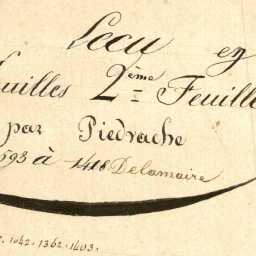 Lecu en
euilles 2ème Feuille
par Piedvache
593 à 1418 Delamaire
1042. 1362. 1403.